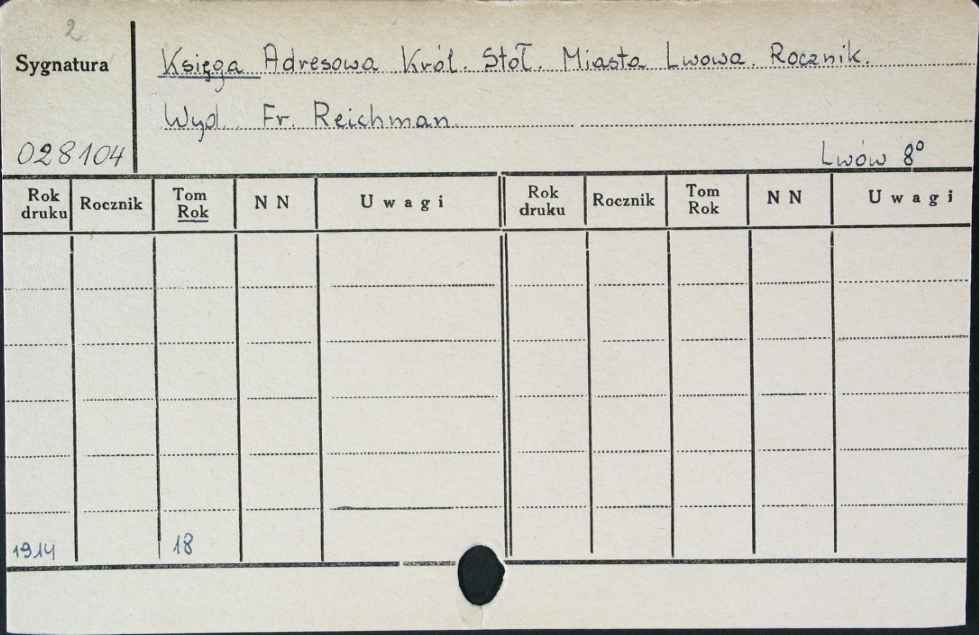 2
Sygnatura
Księga Adresowa Król. Stoł. Miasta Lwowa. Rocznik.
Wyd. Fr. Reichman.
028104
Lwów 8°
Rok druku Rocznik Tom Rok N N Uwagi Rok druku Rocznik Tom Rok N N Uwagi
1914 18